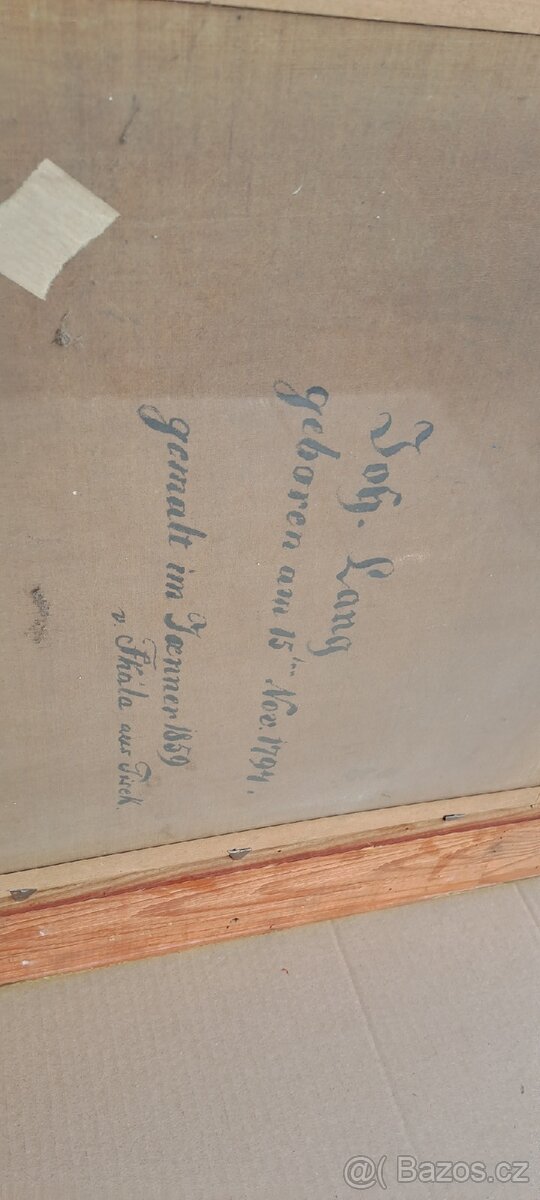 Joh. Lang
geboren am 15ten Nov. 1794.
gemalt im Jænner 1859
v. Skála aus
@( Bazos.cz